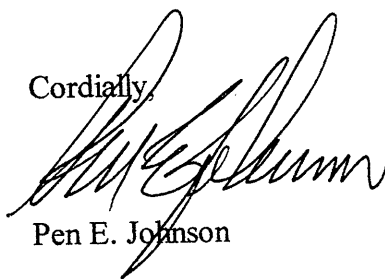 Cordially,
Pen E. Johnson